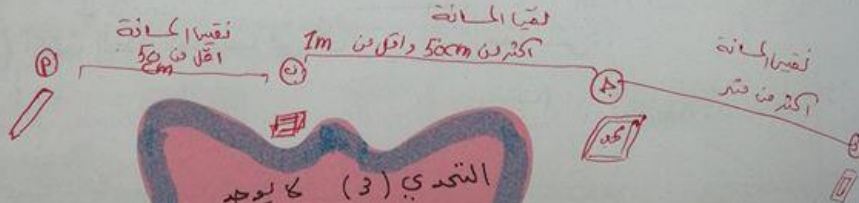 نقيس المسافة
اقل من 50cm
نقيس المسافة
أكثر من 50cm واقل من 1m
نقيس المسافة
أكثر من متر
أ
ب
ج
د
التحدي (3) لا يوجد